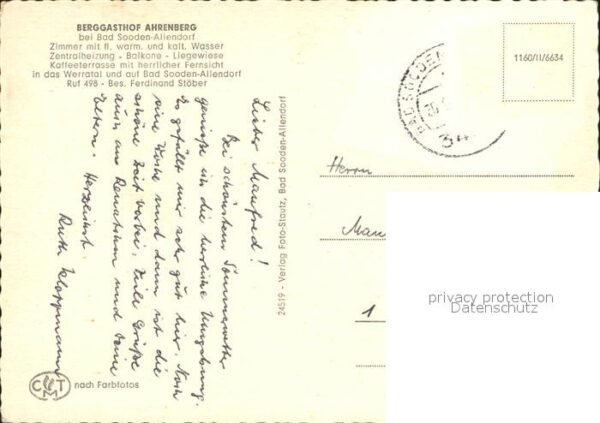 BERGGASTHOF AHRENBERG
bei Bad Sooden-Allendorf
Zimmer mit fl. warm. und kalt. Wasser
Zentralheizung - Balkone - Liegewiese
Kaffeeterrasse mit herrlicher Fernsicht
in das Werratal und auf Bad Sooden-Allendorf
Ruf 498 - Bes. Ferdinand Stöber
Lieber Manfred!
Bei schönstem Sommerwetter
genieße ich die herrliche Umgebung.
Es gefällt mir sehr gut hier. Noch
eine Woche und dann ist die
schöne Zeit vorbei. Viele Grüße
auch an Renate und Deine
Eltern. Herzlichst
Ruth
24519 - Verlag Foto-Stautz, Bad Sooden-Allendorf
CMT
nach Farbfotos
1160/II/6634
BAD SOODEN
Herrn
Man
1
privacy protection
Datenschutz